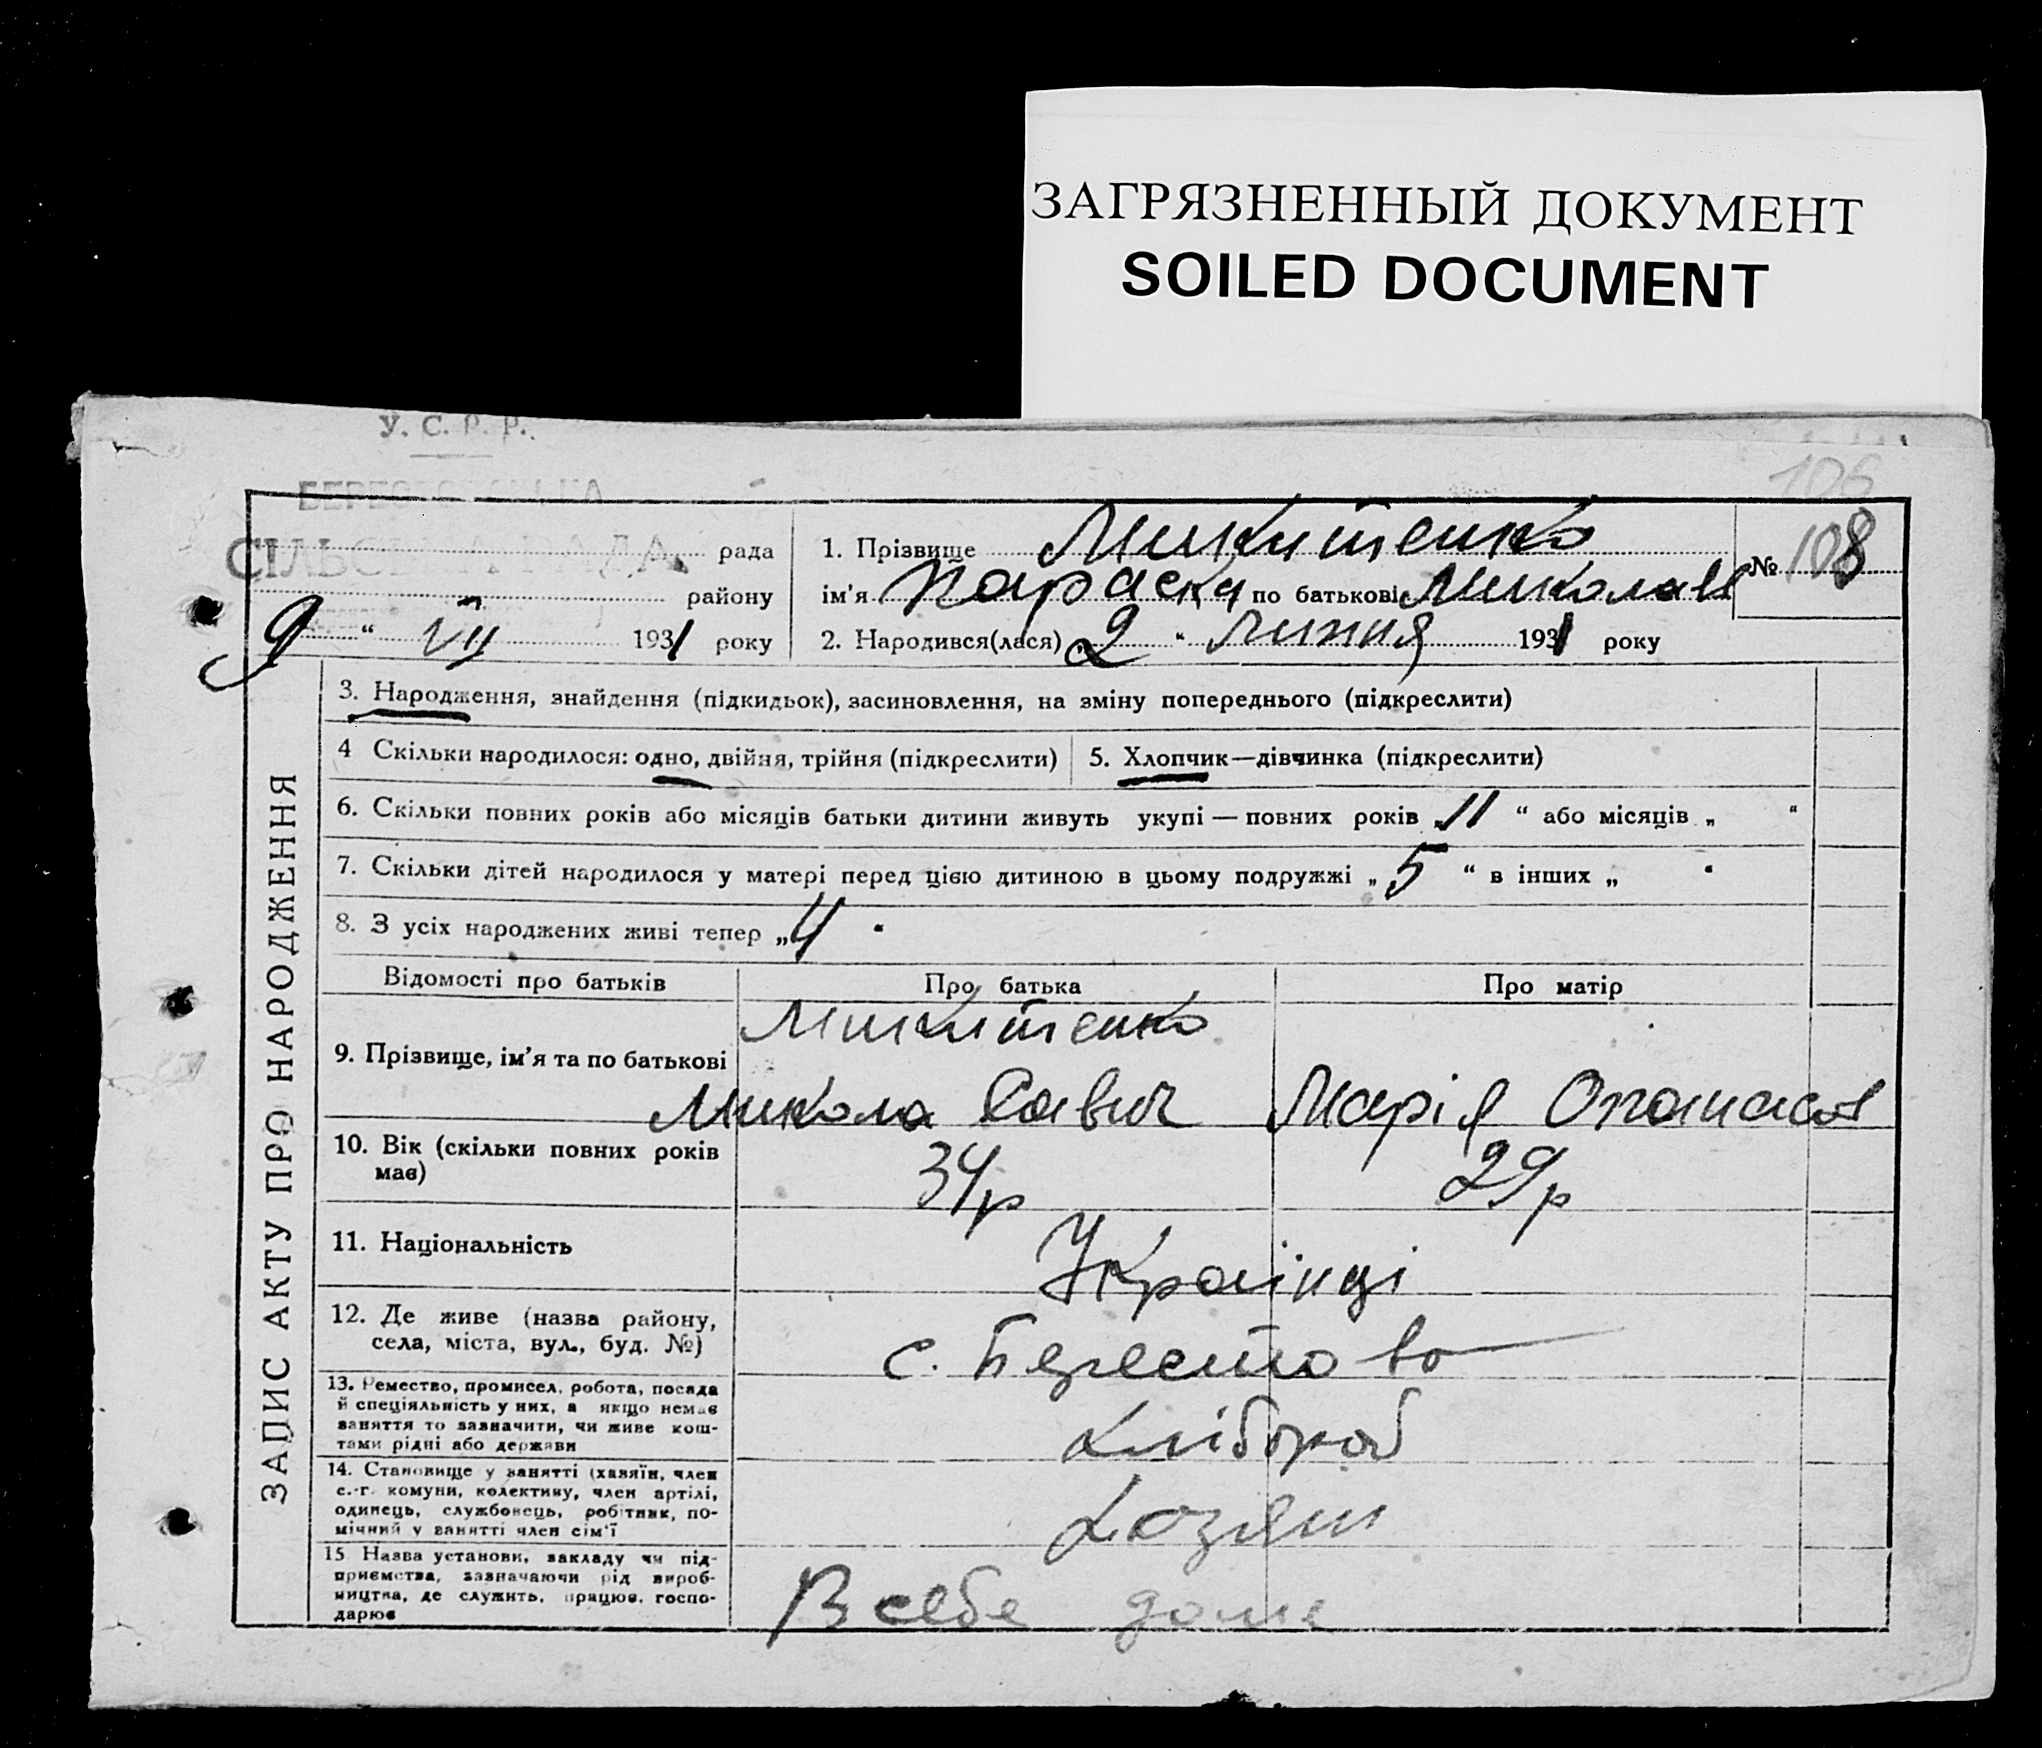 ЗАГРЯЗНЕННЫЙ ДОКУМЕНТ
SOILED DOCUMENT
У. С. Р. Р.
106
СІЛЬСЬКА РАДА
рада
району
9 " VII 1931 року
1. Прізвище Микитенко
ім'я Параска по батькові Микола
№ 108
2. Народився(лася) 2 " Липня 1931 року
ЗАПИС АКТУ ПРО НАРОДЖЕННЯ
3. Народження, знайдення (підкидьок), засиновлення, на зміну попереднього (підкреслити)
4 Скільки народилося: одно, двійня, трійня (підкреслити)
5. Хлопчик—дівчинка (підкреслити)
6. Скільки повних років або місяців батьки дитини живуть укупі — повних років „ 11 " або місяців „ "
7. Скільки дітей народилося у матері перед цією дитиною в цьому подружжі „ 5 " в інших „ "
8. З усіх народжених живі тепер „ 4 "
Відомості про батьків
Про батька
Про матір
9. Прізвище, ім'я та по батькові
Микитенко
Микола Савич
Марія Опанасов
10. Вік (скільки повних років
має)
34р
29р
11. Національність
Українці
12. Де живе (назва району,
села, міста, вул., буд. №)
с. Берестово
13. Ремество, промисел, робота, посада
й спеціяльність у них, а якщо немає
заняття то зазначити, чи живе кош-
тами рідні або держави
хлібороб
14. Становище у занятті (хазяїн, член
с.-г. комуни, колективу, член артілі,
одинець, службовець, робітник, по-
мічний у занятті член сім'ї
Хозяін
15 Назва установи, закладу чи під-
приємства, зазначаючи рід вироб-
ництва, де служить, працює, госпо-
дарює
В себе дома